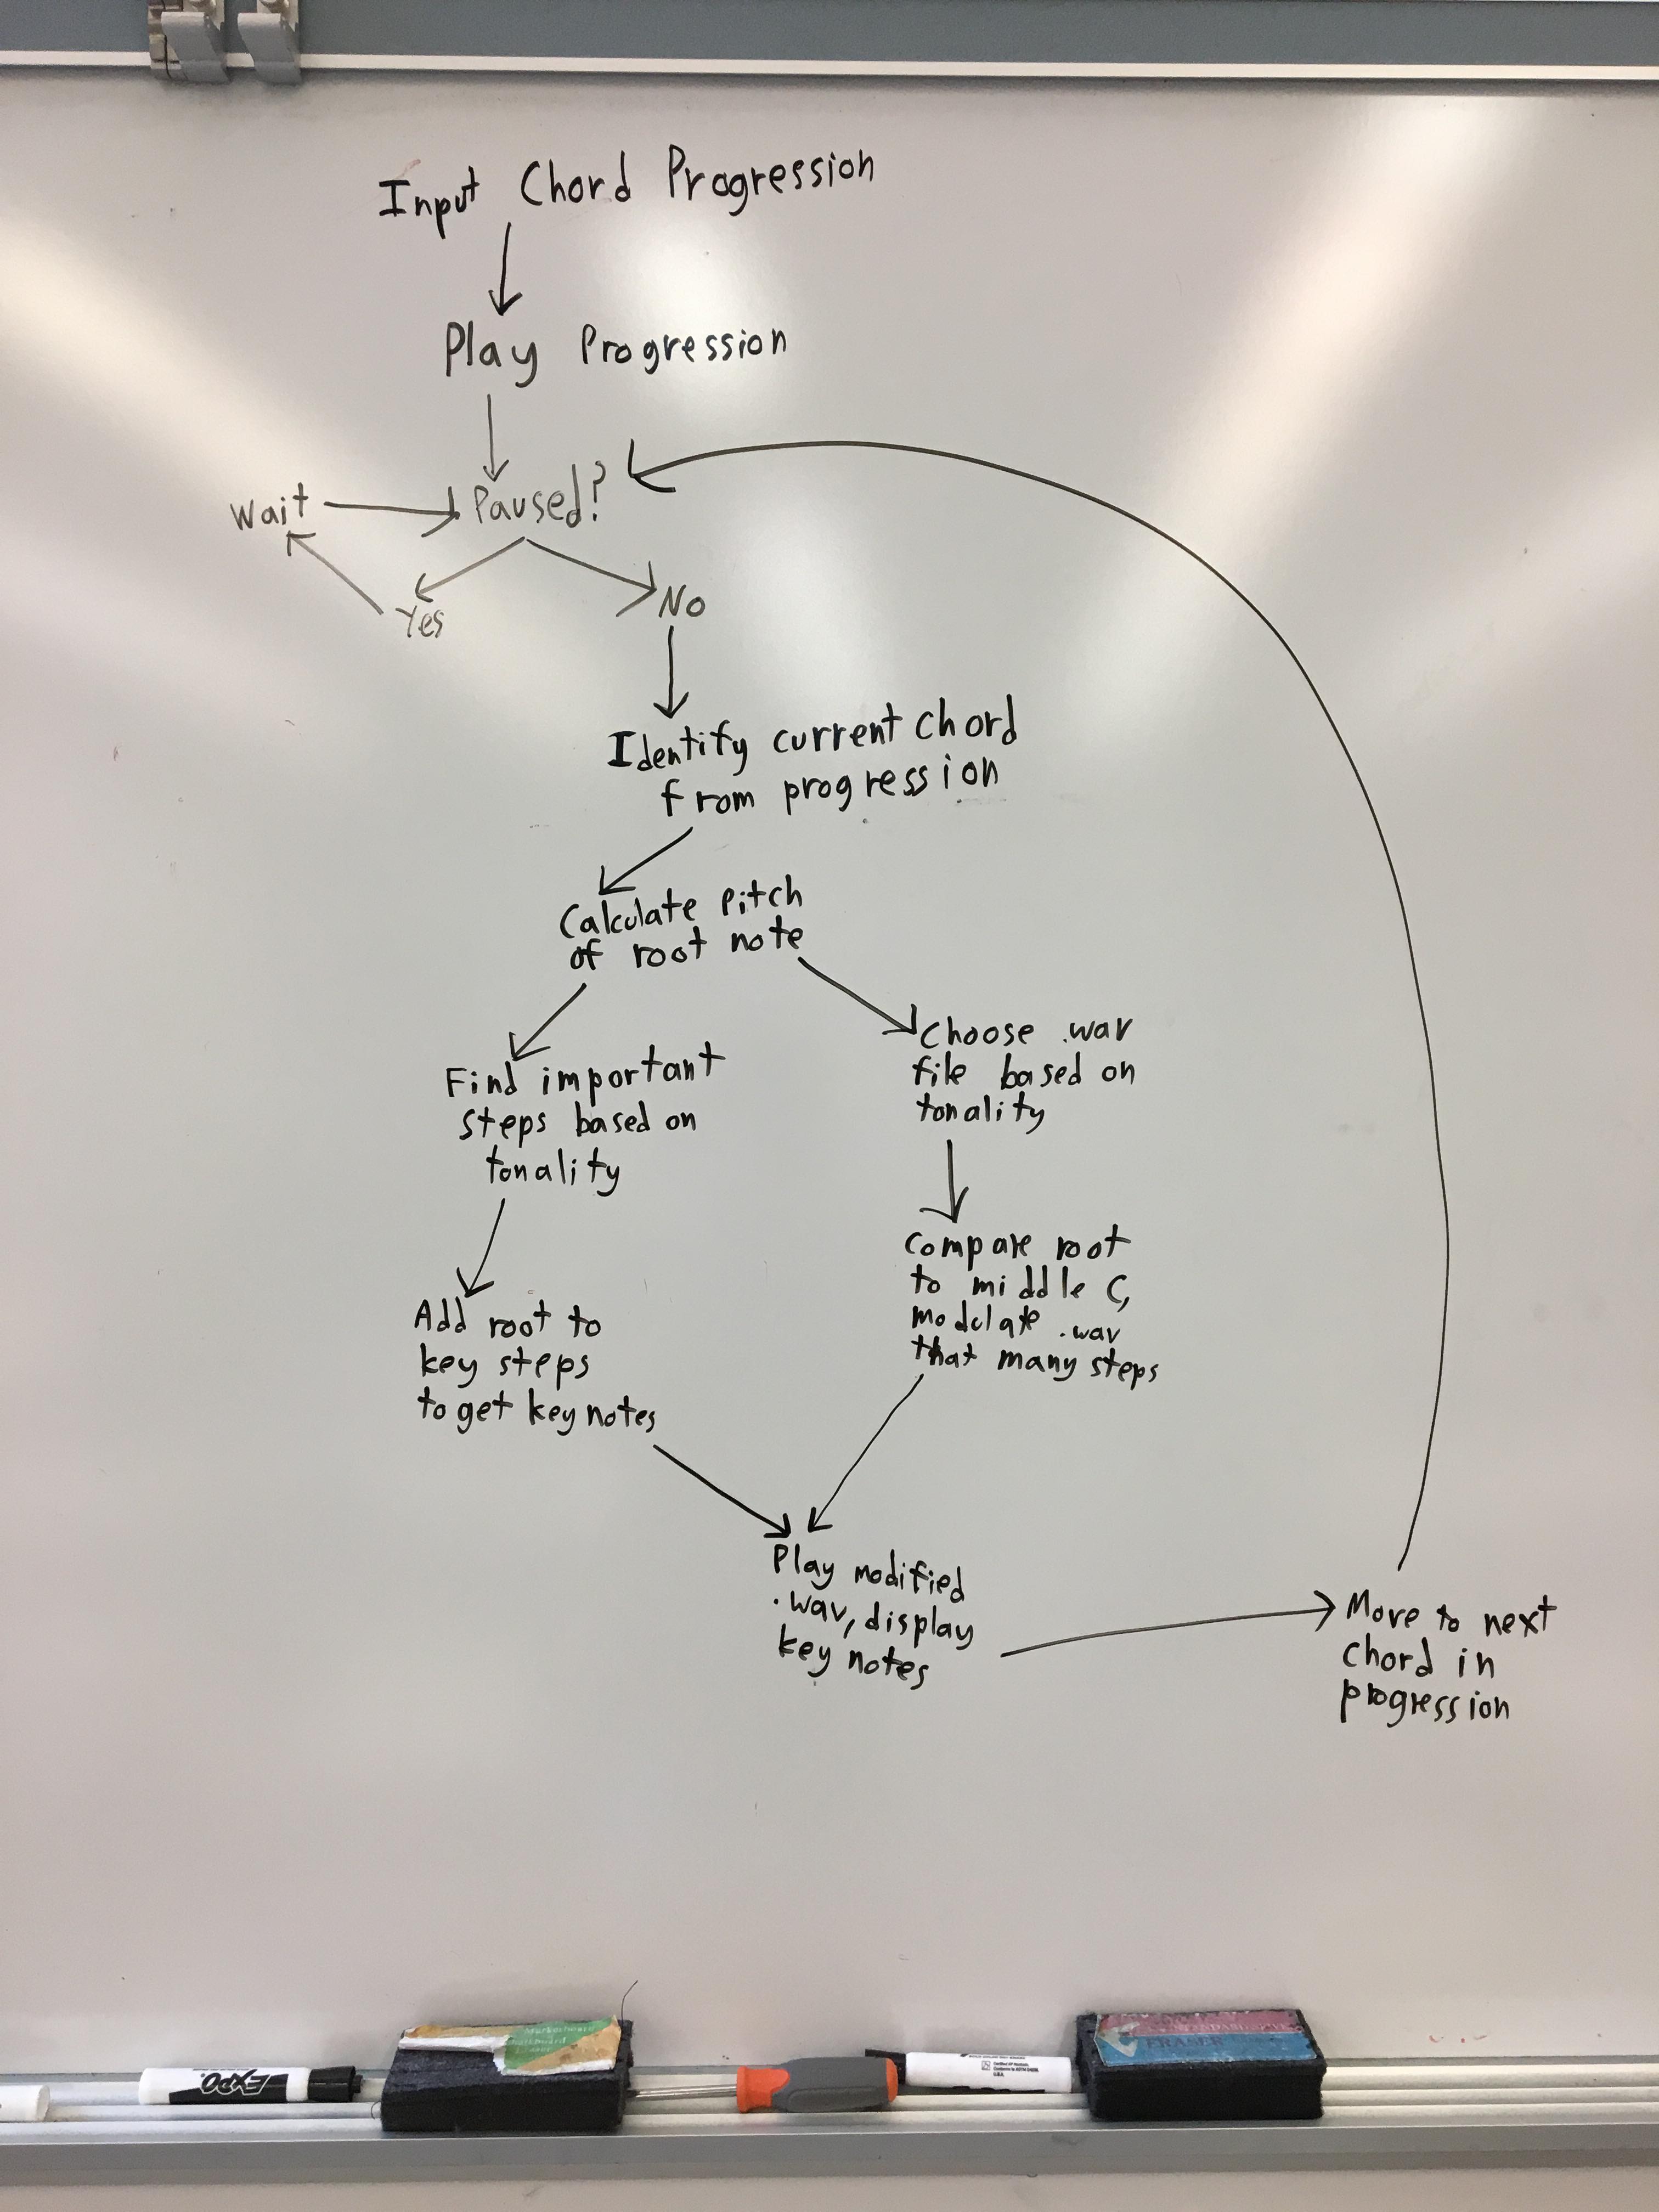 Input Chord Progression
Play Progression
Wait
Paused?
Yes
No
Identify current chord
from progression
Calculate pitch
of root note
Find important
steps based on
tonality
Choose .wav
file based on
tonality
Add root to
key steps
to get key notes
Compare root
to middle C,
modulate .wav
that many steps
Play modified
.wav, display
key notes
Move to next
chord in
progression
EXPO
ERASER